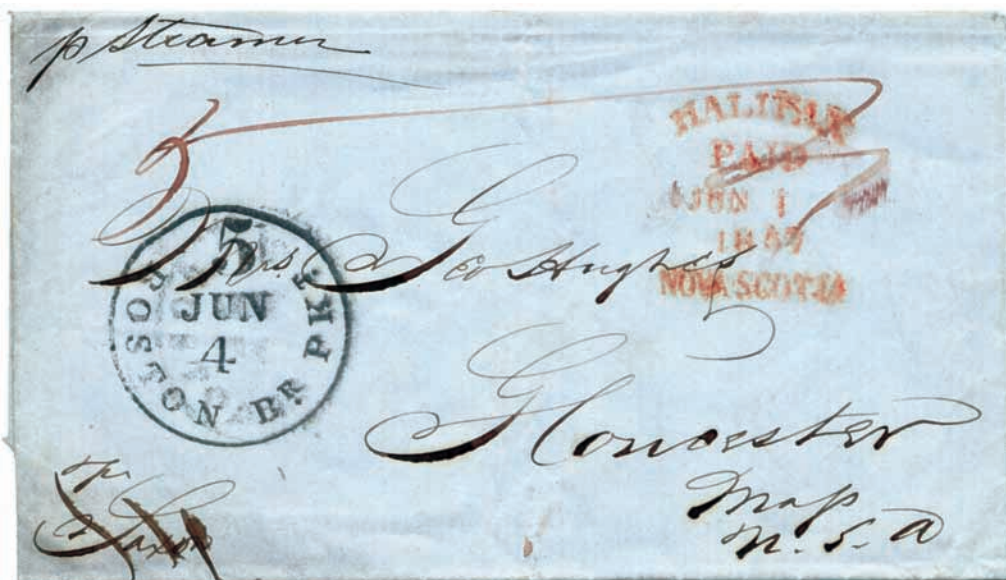 p Steamer
5
HALIFAX
PAID
JUN 1
NOVA SCOTIA
5
JUN
4
BOSTON BR. PKT.
Geo Hughes
Gloucester
Mass
U.S.A
Saxon